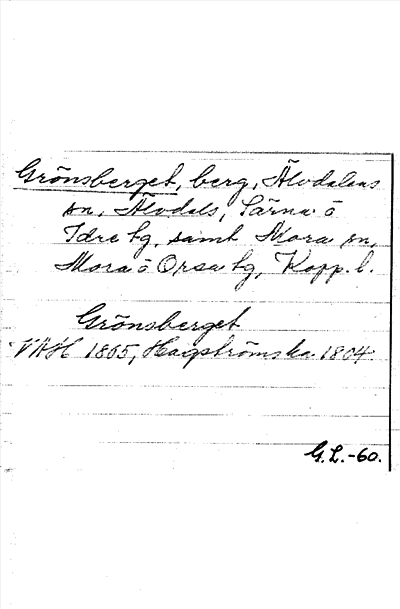 Grönsberget, berg, Älvdalens
sn, Älvdals, Särna o
Idre tg, samt Mora sn,
Mora o Orsa tg, Kopp. l.
Grönsberget
1865, Hagströmska 1804
G.L.-60.